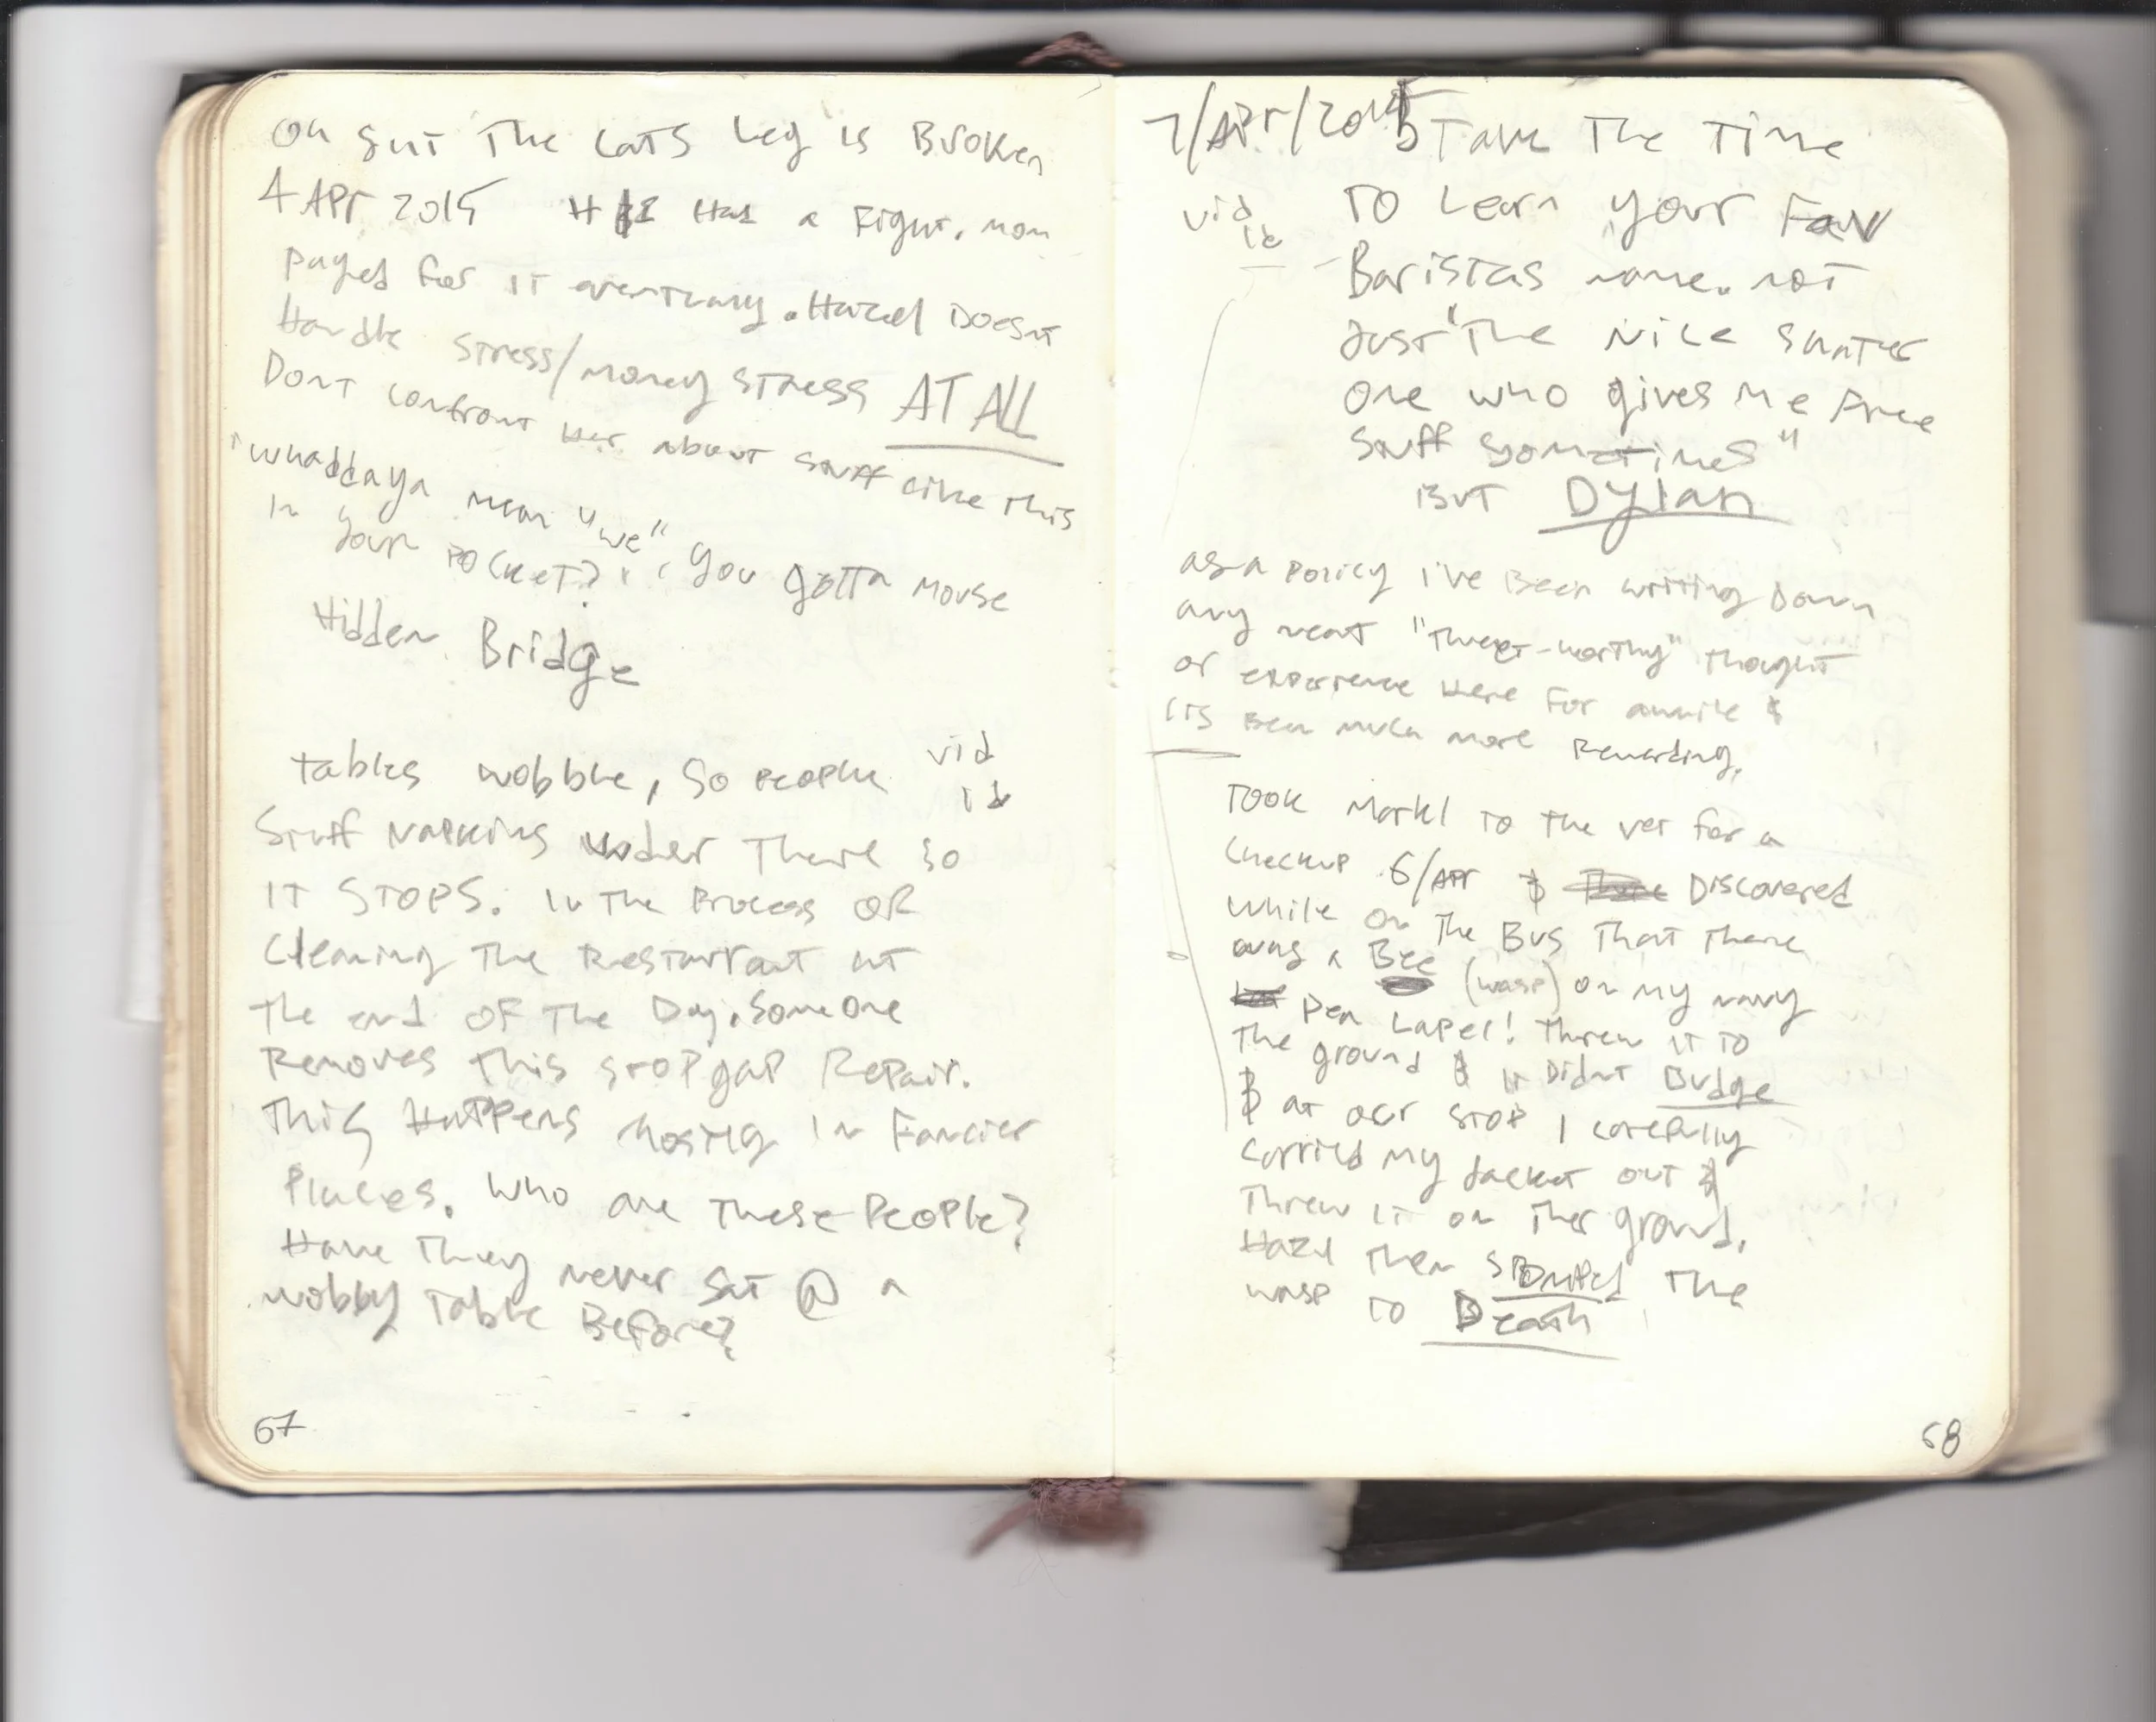 Oh shit the cats leg is Broken
4 APr 2015 HIS Had a Fight. mom
payed for it eventually. Hazel Doesnt
Handle stress/money stress AT ALL
Dont confront her about stuff like this
"Whaddaya mean "we", you gotta mouse
in your POCKET?"
Hidden Bridge
tables wobble, so people vid
Stuff Napkins under there so id
IT STOPS. In the Process OF
Cleaning the Restarraunt at
the end OF The Day, someone
Removes this stopgap Repair.
This HaPPens mostly in Fancier
Places. Who are these People?
Have they never sat @ a
wobbly Table Before?
67
7/APr/2015 Take The Time
vid id To Learn your Fav
Baristas name. not
Just "The Nice skater
one who gives me Free
Stuff sometimes"
But Dylan
as a Policy I've Been writing Down
any neat "tweet-worthy" thought
or experience Here For awhile &
its Been much more Rewarding.
Took Markl to the vet for a
Checkup 6/APr & Discovered
While on The Bus That There
was a Bee (wasp) on my navy
Pea Lapel! Threw it to
The ground & it Didnt Budge
& at our stop I carefully
carried my Jacket out &
Threw it on ther ground.
Hazel then stomped The
wasp to Death
68